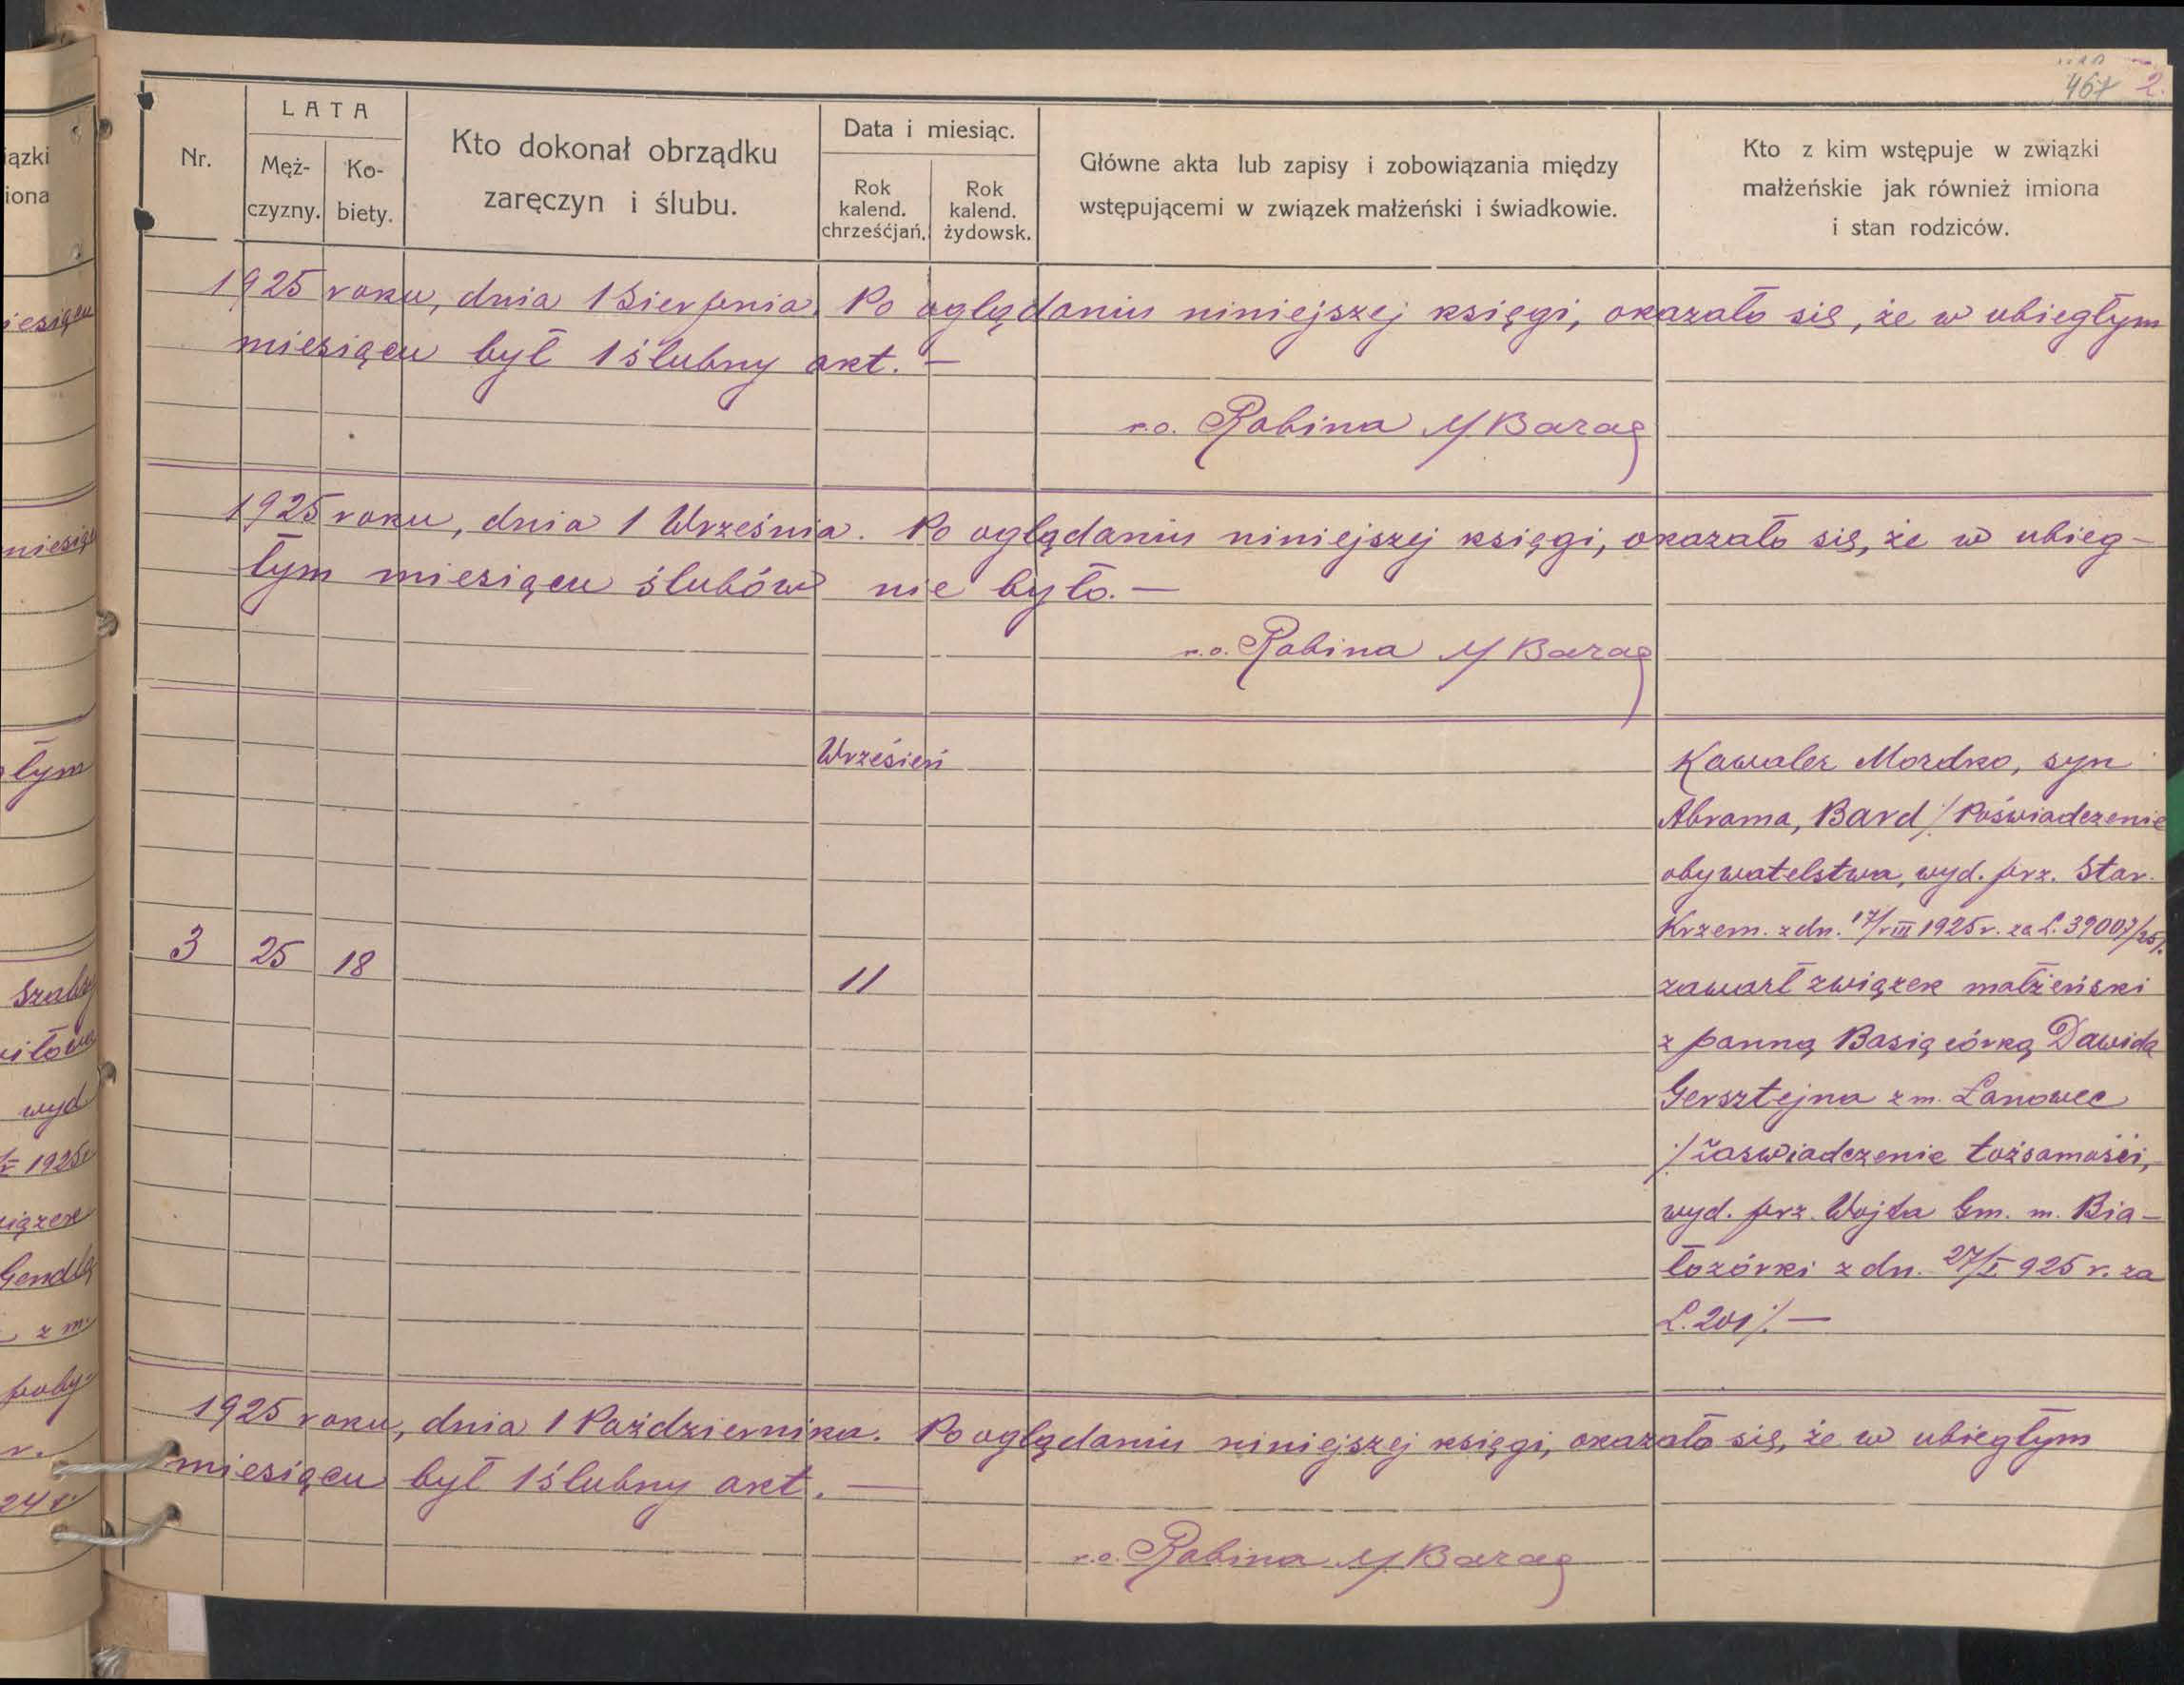 467 2.
LATA
Nr.
Męż-
czyzny.
Ko-
biety.
Kto dokonał obrządku
zaręczyn i ślubu.
Data i miesiąc.
Rok
kalend.
chrześćjań.
Rok
kalend.
żydowsk.
Główne akta lub zapisy i zobowiązania między
wstępującemi w związek małżeński i świadkowie.
Kto z kim wstępuje w związki
małżeńskie jak również imiona
i stan rodziców.
1925 roku, dnia 1 Sierpnia. Po oglądaniu niniejszej księgi, okazało się, że w ubiegłym
miesiącu był 1 ślubny akt. —
r.o. Rabina M Barag
1925 roku, dnia 1 Września. Po oglądaniu niniejszej księgi, okazało się, że w ubieg-
łym miesiącu ślubów nie było. —
r.o. Rabina M Barag
Wrzesień
3 25 18 11
Kawaler Mordko, syn
Abrama, Bard /: Poświadczenie
obywatelstwa, wyd. prz. Star.
Krzem. z dn. 17/VIII 1925 r. za L. 39007/25 :/
zawarł związek małżeński
z panną Basią córką Dawida
Gersztejna z m. Łanowec
/: Zaświadczenie tożsamości,
wyd. prz. Wojta Gm. m. Bia-
łozórki z dn. 27/I 925 r. za
L. 201 :/. —
1925 roku, dnia 1 Października. Po oglądaniu niniejszej księgi, okazało się, że w ubiegłym
miesiącu był 1 ślubny akt. —
r.o. Rabina M Barag
iązki
iona
iesiącu
miesiącu
łym
wyd
1925 r.
iązek
Gendlą
z m.
r.
24 r.